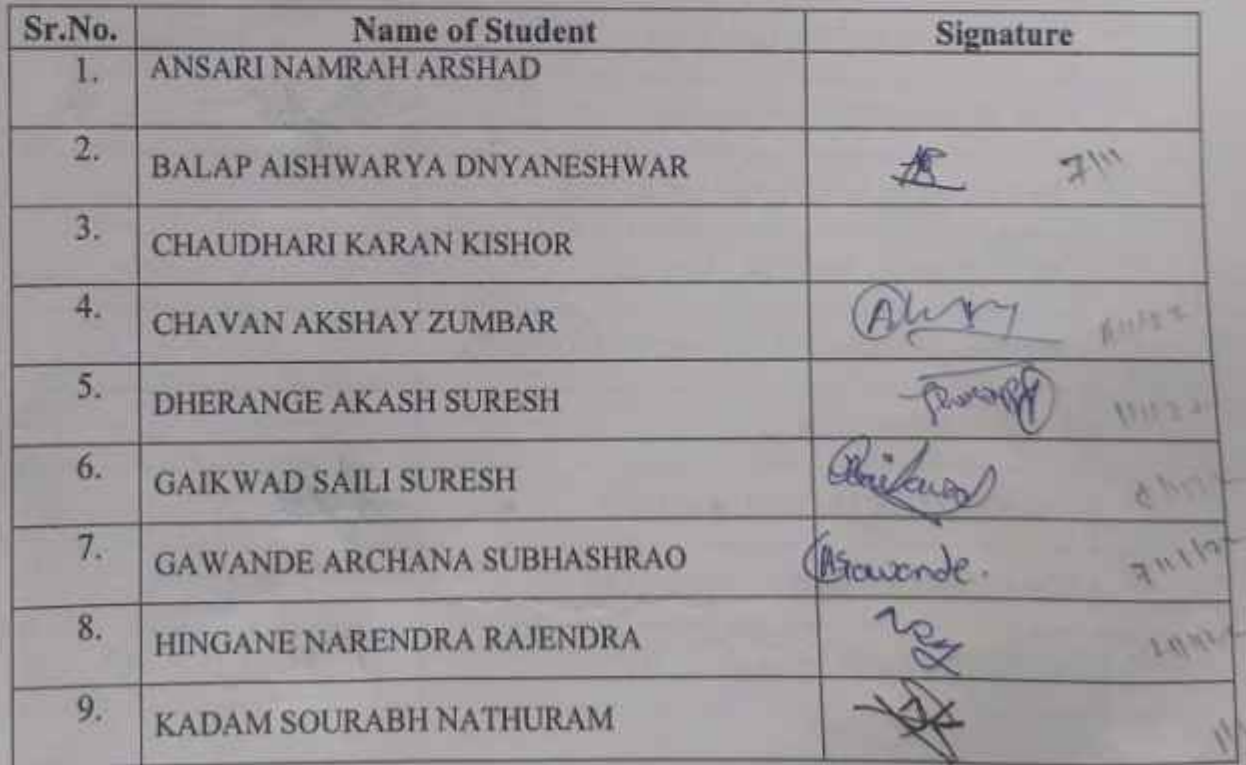 Sr.No. Name of Student Signature
1. ANSARI NAMRAH ARSHAD
2. BALAP AISHWARYA DNYANESHWAR 7/11
3. CHAUDHARI KARAN KISHOR
4. CHAVAN AKSHAY ZUMBAR
5. DHERANGE AKASH SURESH
6. GAIKWAD SAILI SURESH Gaikwad
7. GAWANDE ARCHANA SUBHASHRAO ASGawande.
8. HINGANE NARENDRA RAJENDRA
9. KADAM SOURABH NATHURAM